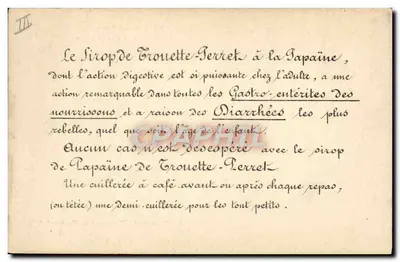 III
Le Sirop de Trouette-Perret à la Papaïne,
dont l'action digestive est si puissante chez l'adulte, a une
action remarquable dans toutes les Gastro-entérites des
nourrissons et a raison des Diarrhées les plus
rebelles, quel que soit l'âge de l'enfant.
Aucun cas n'est désespéré avec le sirop
de Papaïne de Trouette-Perret.
Une cuillerée à café avant ou après chaque repas,
(ou tétée) une demi-cuillerée pour les tout petits.